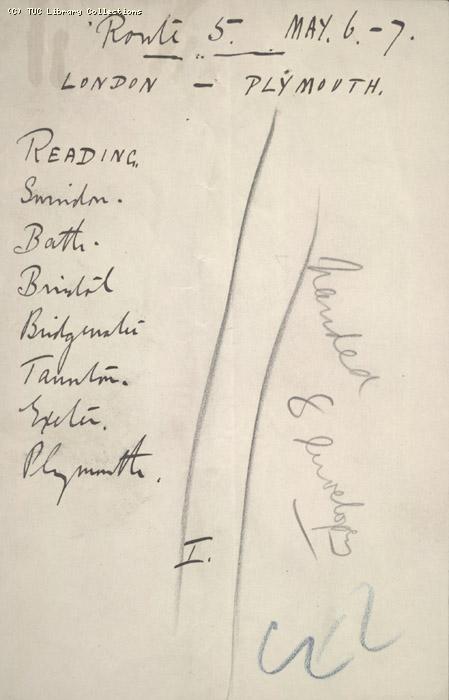 (C) TUC Library Collections
Route 5. MAY. 6.-7.
LONDON - PLYMOUTH.
READING.
Swindon.
Bath.
Bristol
Bridgwater
Taunton.
Exeter.
Plymouth.
I.
handed
8 envelopes